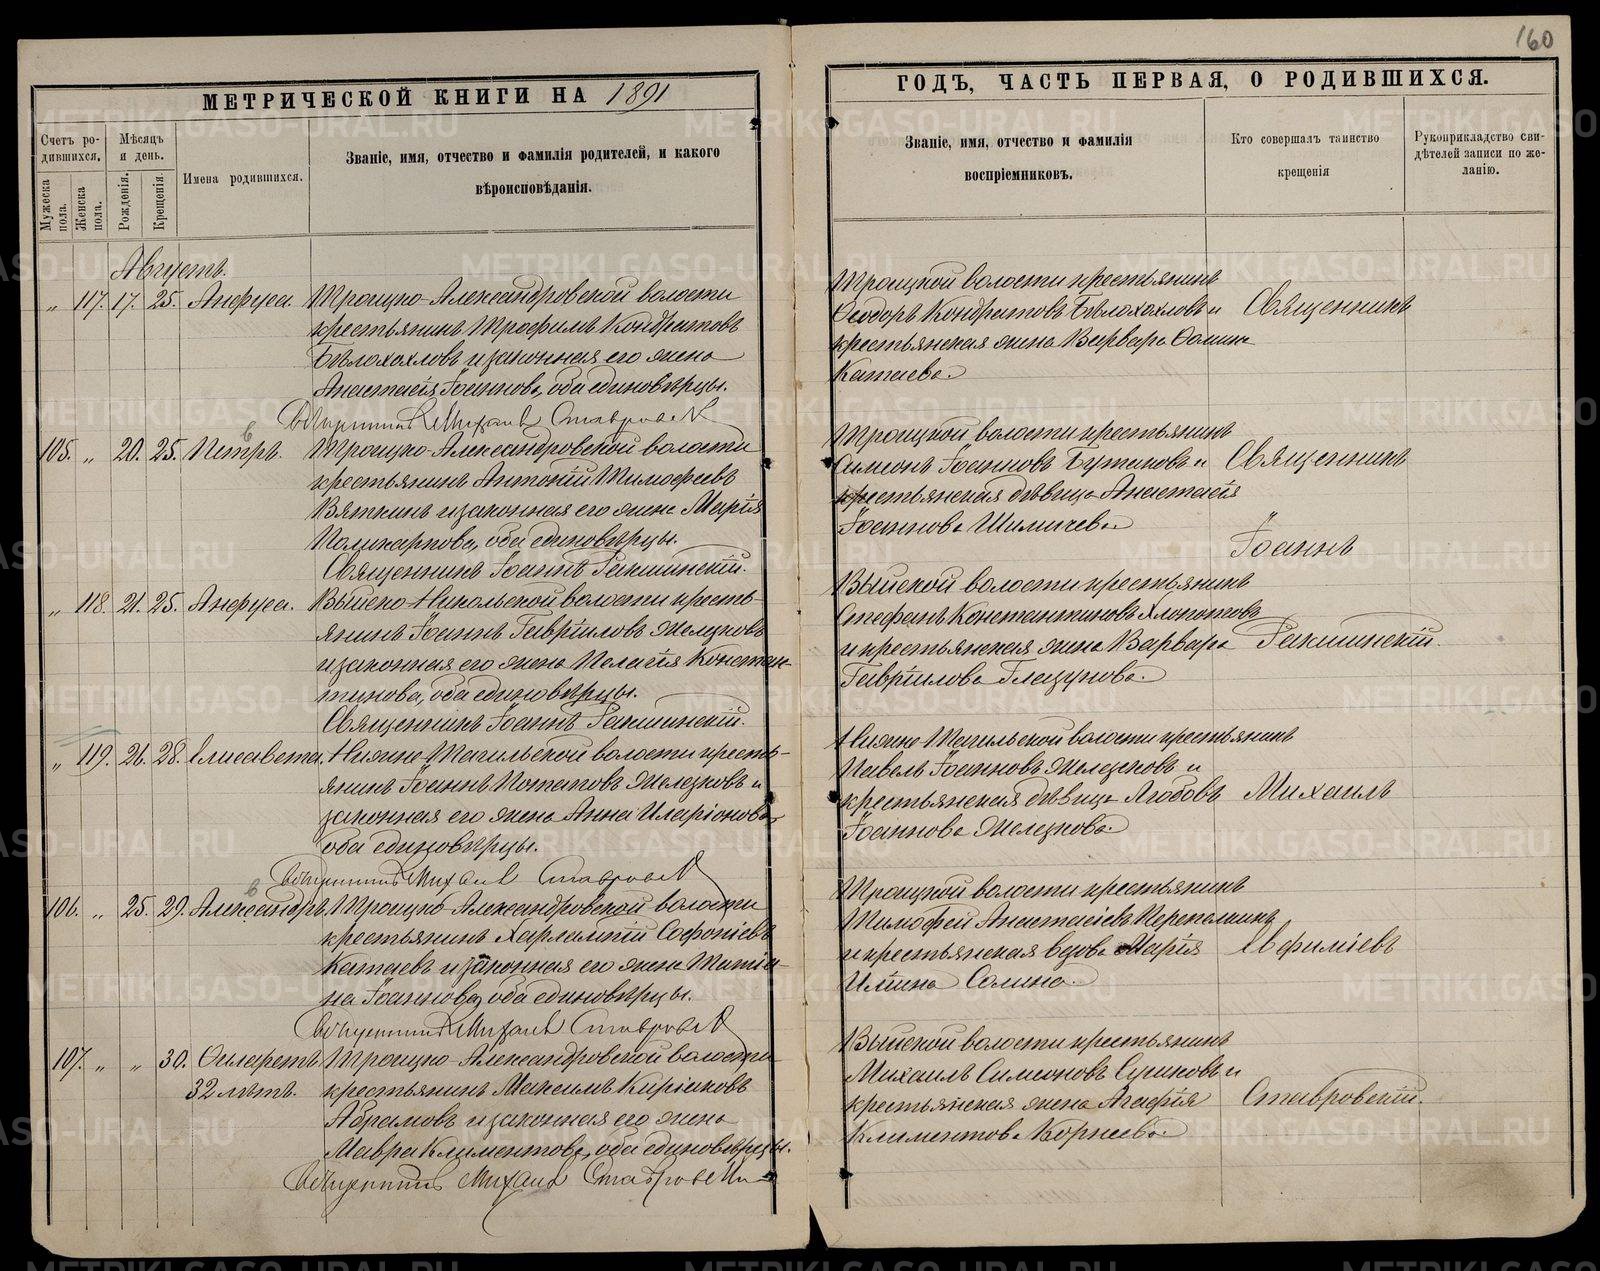 160
МЕТРИЧЕСКОЙ КНИГИ НА 1891
ГОДЪ, ЧАСТЬ ПЕРВАЯ, О РОДИВШИХСЯ.
Счетъ ро-
дившихся.
Мужеска
пола.
Женска
пола.
Мѣсяцъ
и день.
Рожденія.
Крещенія.
Имена родившихся.
Званіе, имя, отчество и фамилія родителей, и какого
вѣроисповѣданія.
Званіе, имя, отчество и фамилія
воспріемниковъ.
Кто совершалъ таинство
крещенія
Рукоприкладство сви-
дѣтелей записи по же-
ланію.
Августъ.
„ 117. 17. 25. Анфуса. Троицко-Александровской волости
крестьянинъ Трофимъ Кондратовъ
Бѣлохохловъ и законная его жена
Анастасія Іоаннова, оба единовѣрцы.
Священникъ Михаилъ Ставровск
105. „ 20. 25. Петръ. Троицко-Александровской волости
крестьянинъ Антоній Тимофеевъ
Вяткинъ и законная его жена Марія
Поликарпова, оба единовѣрцы.
Священникъ Іоаннъ Гакшинскій.
„ 118. 21. 25. Анфуса. Выйско-Никольской волости кресть-
янинъ Іоаннъ Гавріиловъ Желѣзковъ
и законная его жена Пелагія Констан-
тинова, оба единовѣрцы.
Священникъ Іоаннъ Гакшинскій.
„ 119. 26. 28. Елисавета. Нижне-Тагильской волости кресть-
янинъ Іоаннъ Потаповъ Желѣзковъ и
законная его жена Анна Иларіонова,
оба единовѣрцы.
Священникъ Михаилъ Ставровск
106. „ 25. 29. Александръ. Троицко-Александровской волости
крестьянинъ Харлампій Софоніевъ
Катаевъ и законная его жена Татіа-
на Іоаннова, оба единовѣрцы.
Священникъ Михаилъ Ставровск
107. „ „ 30. Филаретъ Троицко-Александровской волости
32 лѣтъ. крестьянинъ Максимъ Киріаковъ
Абрамовъ и законная его жена
Мавра Климентова, оба единовѣрцы.
Священникъ Михаилъ Ставровскій
Троицкой волости крестьянинъ
Ѳеодоръ Кондратовъ Бѣлохохловъ и
крестьянская жена Варвара Фомина
Катаева.
Троицкой волости крестьянинъ
Симеонъ Іоанновъ Бутаковъ и
крестьянская дѣвица Анастасія
Іоаннова Шиличева.
Выйской волости крестьянинъ
Стефанъ Константиновъ Хлопотовъ
и крестьянская жена Варвара
Гавріилова Глазунова.
Нижне-Тагильской волости крестьянинъ
Павелъ Іоанновъ Желѣзковъ и
крестьянская дѣвица Любовь
Іоаннова Желѣзкова.
Троицкой волости крестьянинъ
Тимофей Анастасіевъ Перепелкинъ
и крестьянская вдова Марія
Ильина Сомина.
Выйской волости крестьянинъ
Михаилъ Симеоновъ Сушковъ и
крестьянская жена Агафія
Климентова Корнеева.
Священникъ
Священникъ
Іоаннъ
Гакшинскій.
Михаилъ
Евфиміевъ
Ставровскій.
METRIKI.GASO-URAL.RU